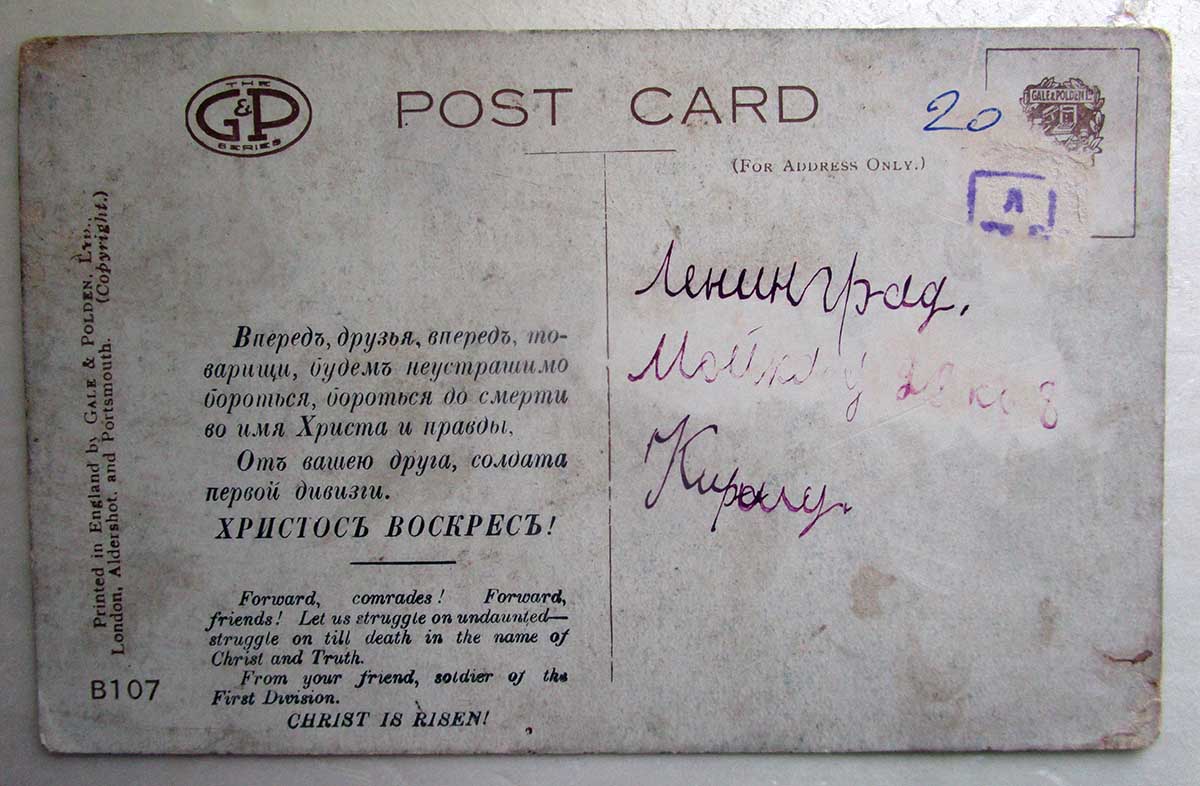 THE
G&P
SERIES
POST CARD
(FOR ADDRESS ONLY.)
20
GALE & POLDEN LTD
А
Printed in England by GALE & POLDEN, LTD.,
London, Aldershot, and Portsmouth. (Copyright.)
B107
Впередъ, друзья, впередъ, то-
варищи, будемъ неустрашимо
бороться, бороться до смерти
во имя Христа и правды.
Отъ вашею друга, солдата
первой дивизги.
ХРИСТОСЪ ВОСКРЕСЪ!
Forward, comrades! Forward,
friends! Let us struggle on undaunted—
struggle on till death in the name of
Christ and Truth.
From your friend, soldier of the
First Division.
CHRIST IS RISEN!
Ленинград.
8